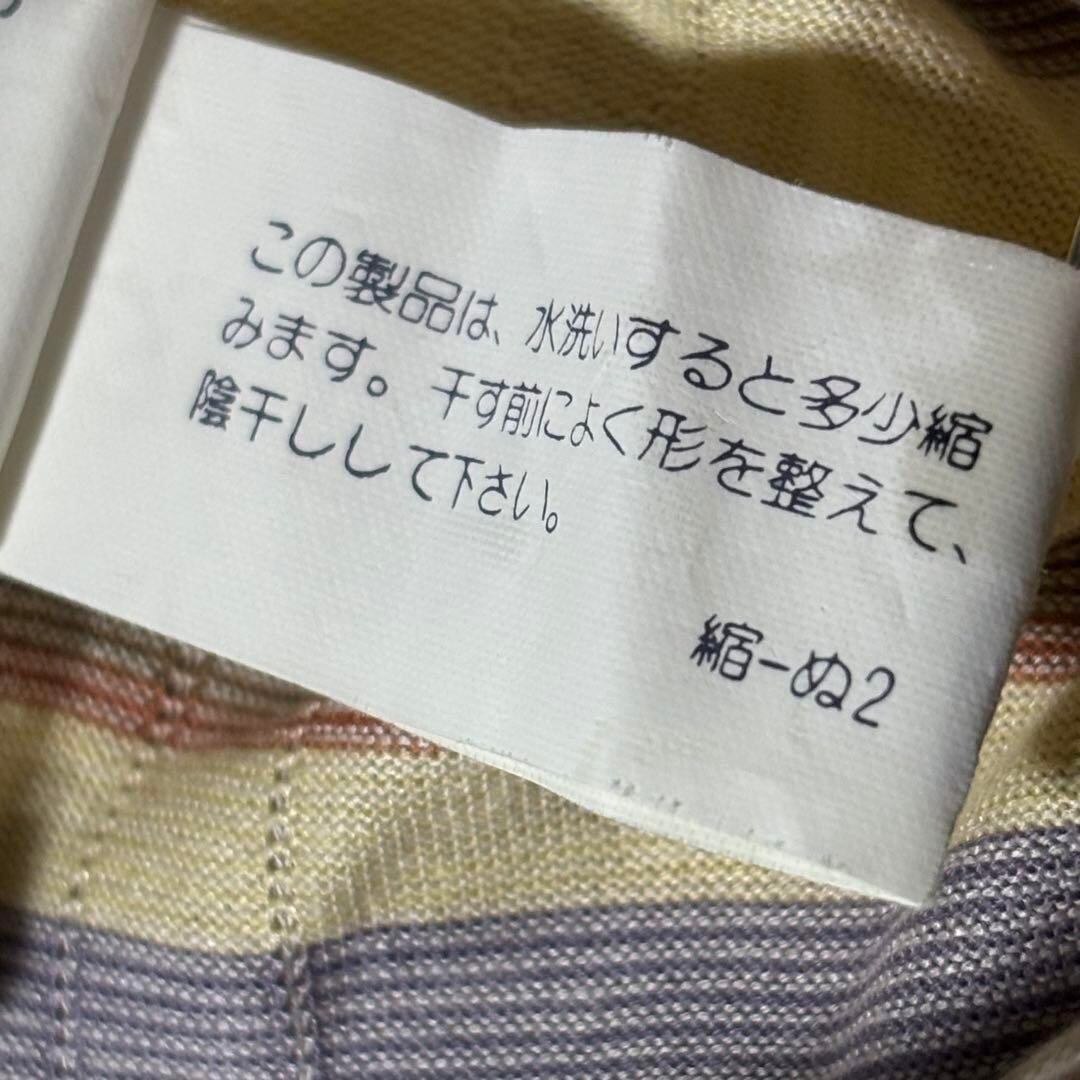 この製品は、水洗いすると多少縮
みます。干す前によく形を整えて、
陰干しして下さい。
縮ーぬ2